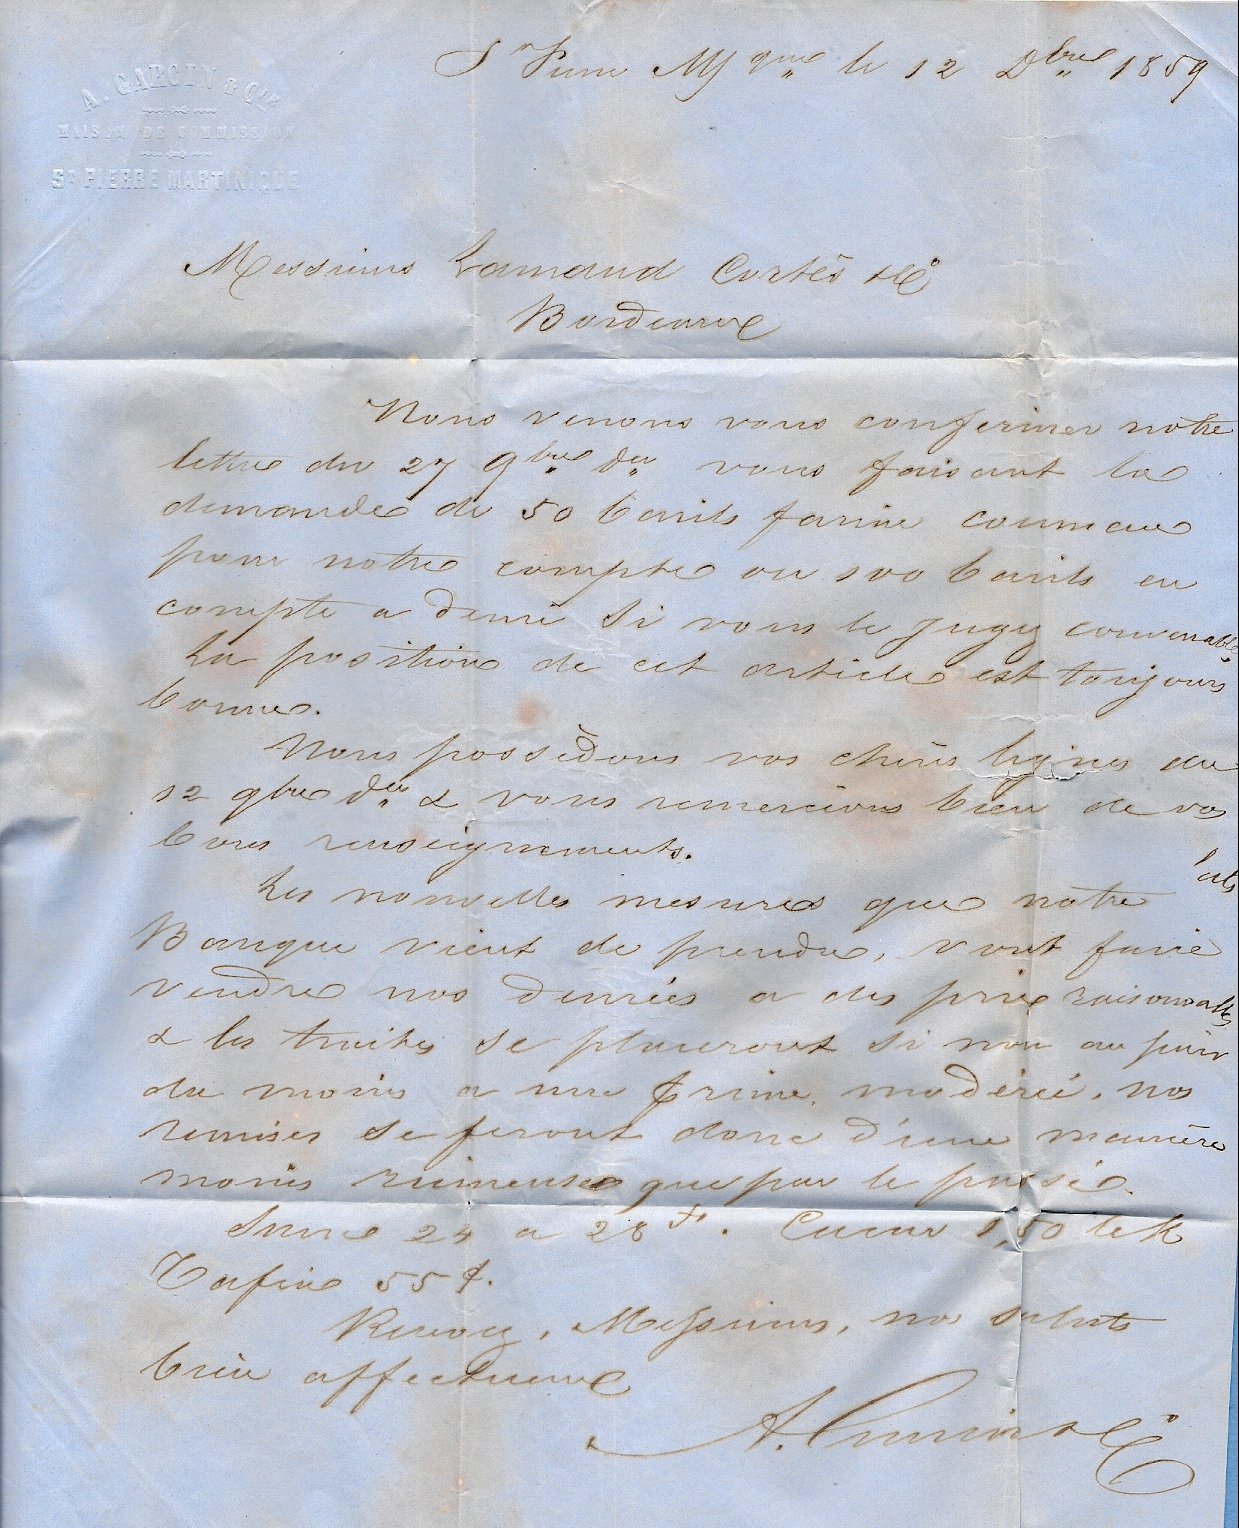 A. GARCIN & Cie
MAISON DE COMMISSION
St PIERRE MARTINIQUE
St Pierre Mqque le 12 Dbre 1859
Messieurs Lamaud Cortès & Cº
Bordeaux
Nous venons vous confirmer notre
lettre du 27 9bre der vous faisant la
demande de 50 barils farine
pour notre compte ou 100 barils en
compte a demi si vous le jugez convenable
La position de cet article est toujours
bonne.
Nous possèdons vos chères lignes du
12 9bre der & vous remercions bien de vos
bons renseignements.
Les nouvelles mesures que notre
Banque vient de prendre, vont faire
vendre nos denrées a des prix raisonnables
& les traites se placeront si non au pair
du moins a une prime modérée. nos
remises se feront donc d'une manière
moins ruineuse que par le passé.
Sucre 24 a 28 f. Cacao 1,50 le K
Tafia 55 c.
Recevez, Messieurs, nos saluts
bien affectueux
A. Garcin & Cº